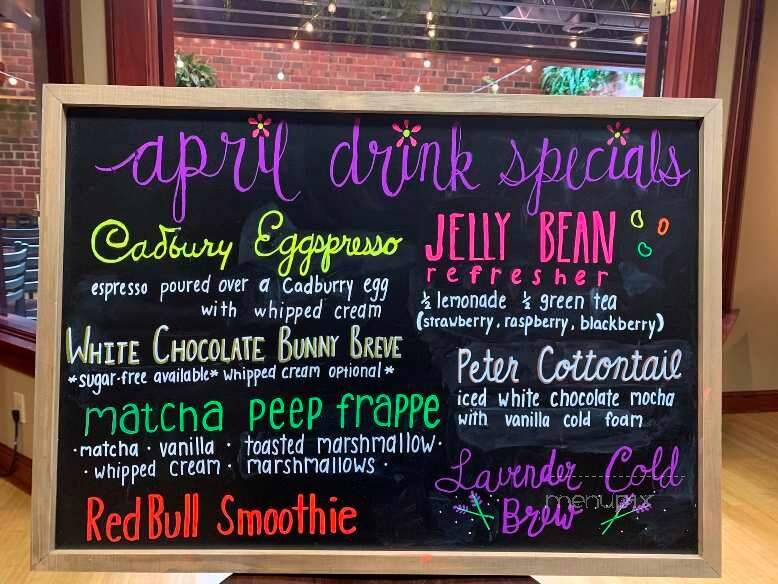 april drink specials
Cadbury Eggspresso
espresso poured over a Cadburry egg
with whipped cream
WHITE CHOCOLATE BUNNY BREVE
*sugar-free available* whipped cream optional*
matcha peep frappe
·matcha · vanilla · toasted marshmallow·
·whipped cream · marshmallows ·
Red Bull Smoothie
JELLY BEAN
refresher
½ lemonade ½ green tea
(strawberry, raspberry, blackberry)
Peter Cottontail
iced white chocolate mocha
with vanilla cold foam
Lavender Cold
Brew
menupix